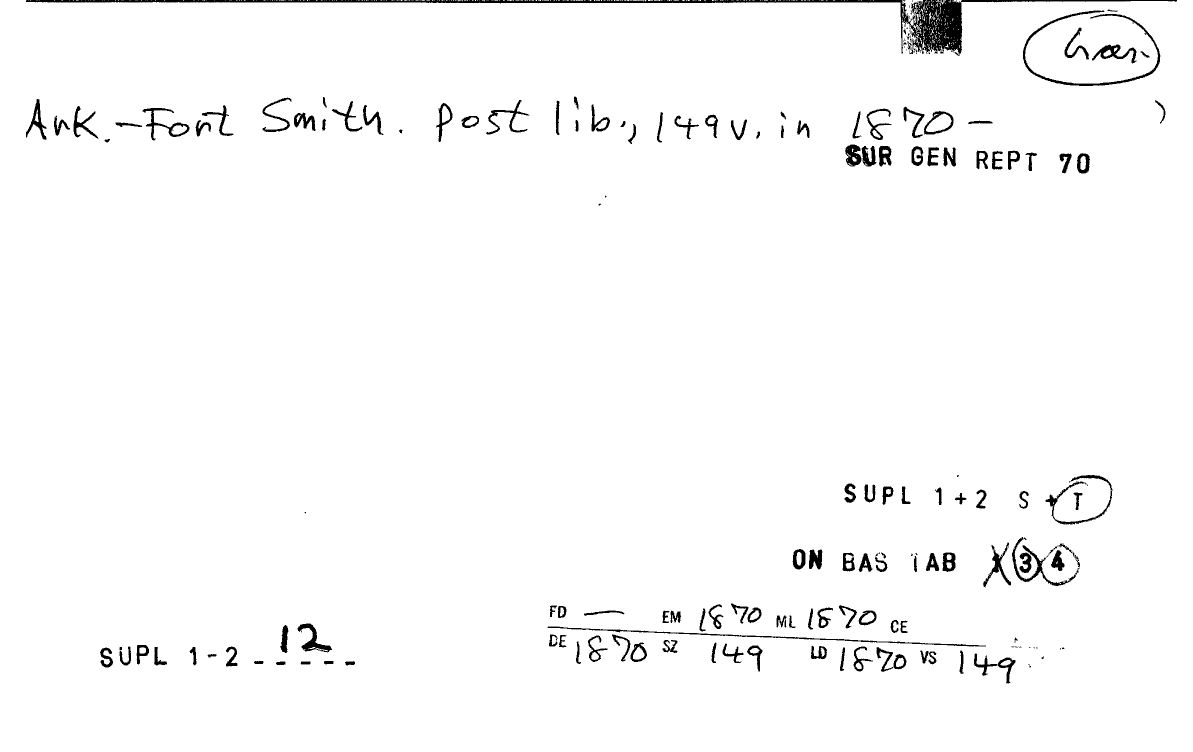 Ark.-Fort Smith. Post lib., 149v. in 1870-
SUR GEN REPT 70
)
SUPL 1+2 S + T
ON BAS TAB 3 4
FD — EM 1870 ML 1870 CE
DE 1870 SZ 149 LD 1870 VS 149
SUPL 1-2 ----- 12